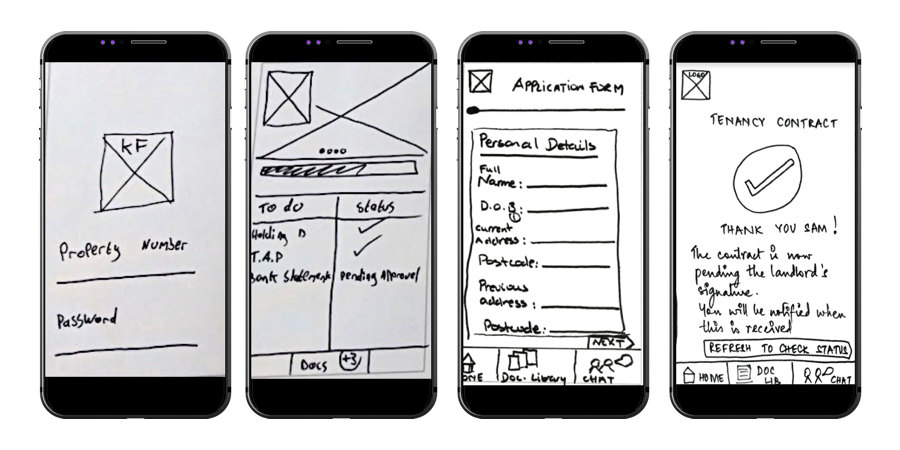 KF
Property Number
Password
To do
Status
Holding D
T.A.P
Bank Statement
Pending Approval
Docs
+3
APPLICATION FORM
Personal Details
Full
Name:
D.O.B:
Current
Address:
Postcode:
Previous
address:
Postcode:
NEXT
HOME
Doc. Library
CHAT
LOGO
TENANCY CONTRACT
THANK YOU SAM!
The contract is now
pending the landlord's
signature.
You will be notified when
this is received
REFRESH TO CHECK STATUS
HOME
DOC
LIB
CHAT